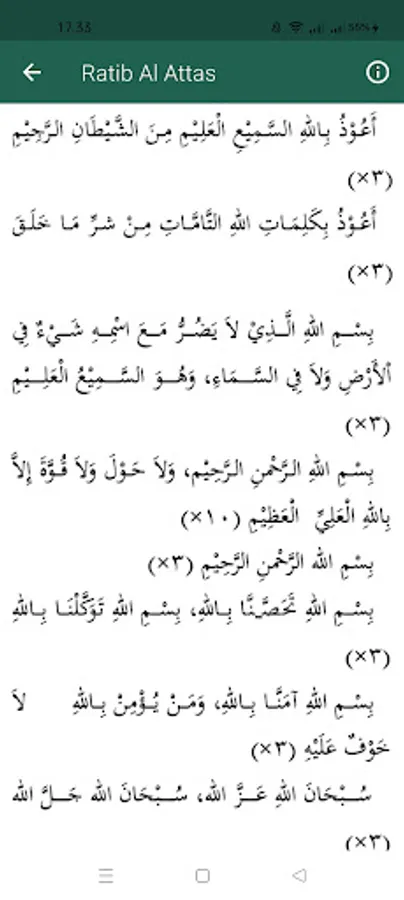 17.33
56%
Ratib Al Attas
أَعُوْذُ بِاللهِ السَّمِيْعِ الْعَلِيْمِ مِنَ الشَّيْطَانِ الرَّجِيْمِ
(٣×)
أَعُوْذُ بِكَلِمَاتِ اللهِ التَّامَّاتِ مِنْ شرِّ مَا خَلَقَ
(٣×)
بِسْمِ اللهِ الَّذِيْ لاَ يَضُرُّ مَعَ اسْمِهِ شَيْءٌ فِي
اْلأَرْضِ وَلاَ فِي السَّمَاءِ، وَهُوَ السَّمِيْعُ الْعَلِيْمِ
(٣×)
بِسْمِ اللهِ الرَّحْمنِ الرَّحِيْمِ، وَلاَ حَوْلَ وَلاَ قُوَّةَ إِلاَّ
بِاللهِ الْعَلِيِّ الْعَظِيْمِ (١٠×)
بِسْمِ الله الرَّحْمنِ الرَّحِيْمِ (٣×)
بِسْمِ اللهِ تَحَصَّنَّا بِاللهِ، بِسْمِ اللهِ تَوَكَّلْنَا بِاللهِ
(٣×)
بِسْمِ اللهِ آمَنَّا بِاللهِ، وَمَنْ يُؤْمِنْ بِاللهِ لاَ
خَوْفٌ عَلَيْهِ (٣×)
سُبْحَانَ اللهِ عَزَّ الله، سُبْحَانَ الله جَلَّ الله
(٣×)